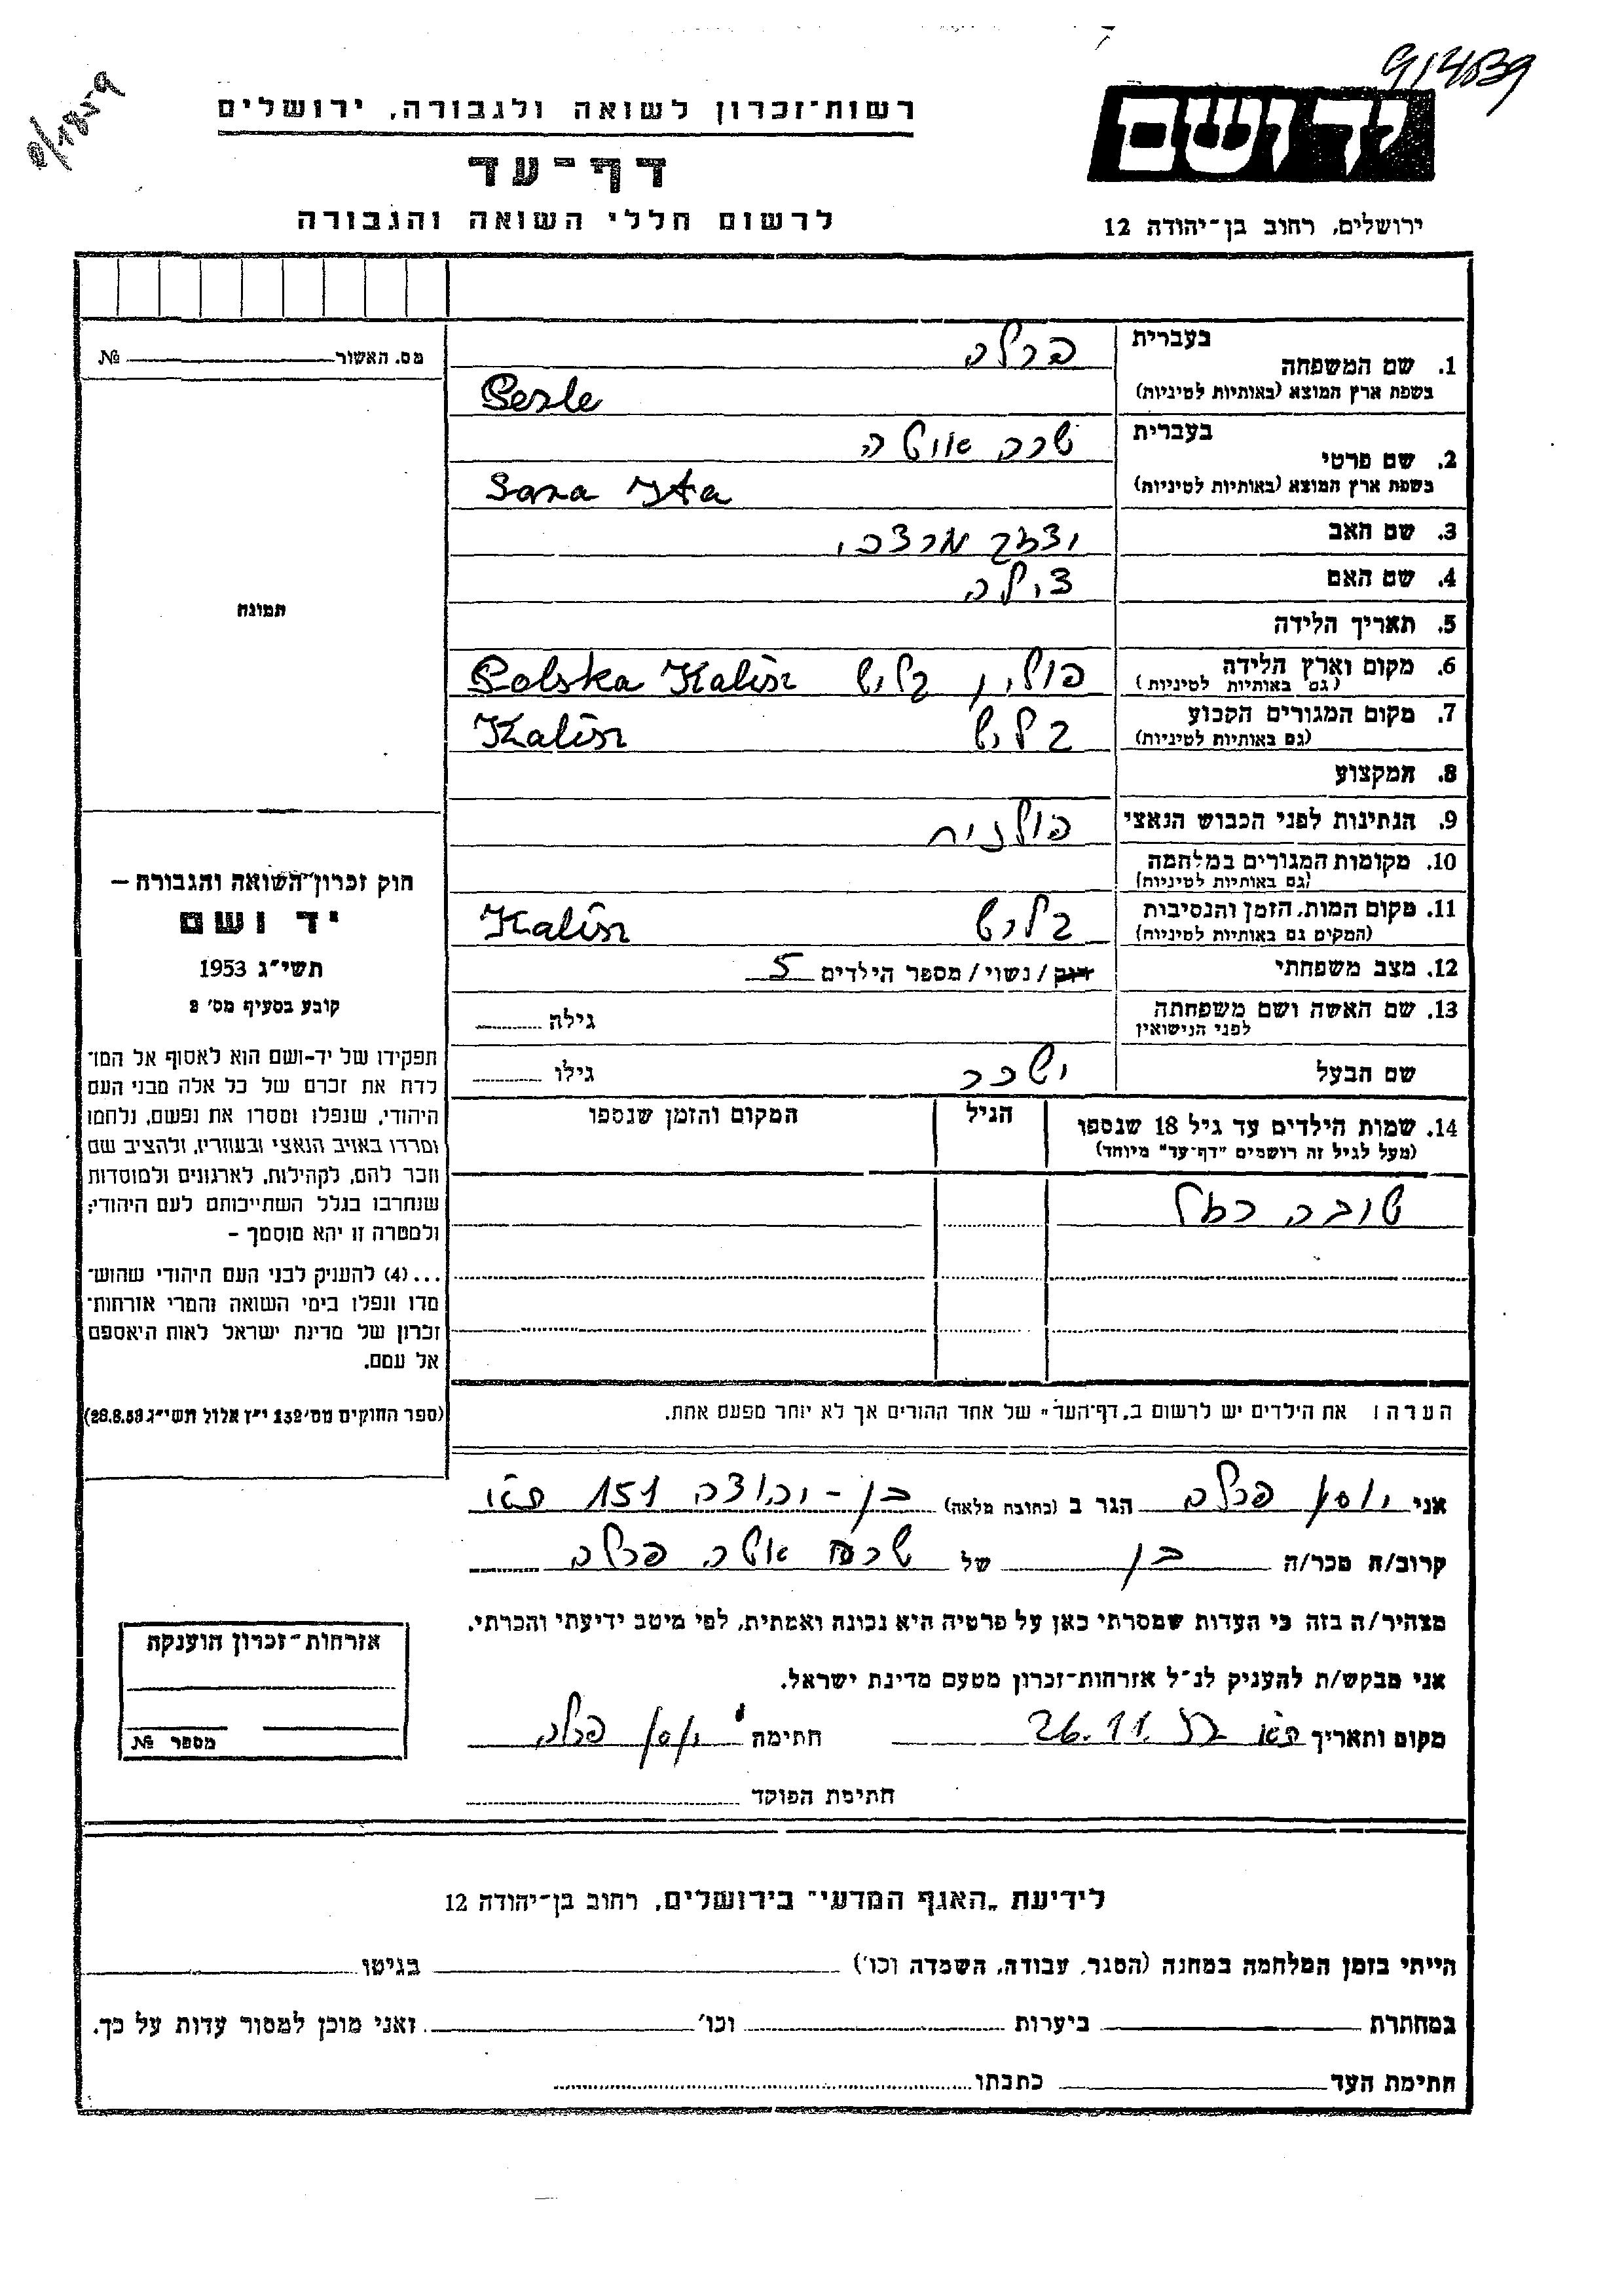 914839
רשות־זכרון לשואה ולגבורה, ירושלים
דף־עד
לרשום חללי השואה והגבורה
יד ושם
ירושלים, רחוב בן־יהודה 12
מס. האשור № 
תמונה
בעברית
1. שם המשפחה פרלה
בשפת ארץ המוצא (באותיות לטיניות) Perle
בעברית
2. שם פרטי שרה
בשפת ארץ המוצא (באותיות לטיניות) Sara Ita
3. שם האב יצחק מרדכי
4. שם האם צילה
5. תאריך הלידה
6. מקום וארץ הלידה פולין קליש Polska Kalisz
(גם באותיות לטיניות)
7. מקום המגורים הקבוע קליש Kalisz
(גם באותיות לטיניות)
8. המקצוע
9. הנתינות לפני הכבוש הנאצי פולנית
10. מקומות המגורים במלחמה
(גם באותיות לטיניות)
11. מקום המות, הזמן והנסיבות קליש Kalisz
(המקום גם באותיות לטיניות)
12. מצב משפחתי רווק / נשוי / מספר הילדים 5
13. שם האשה ושם משפחתה גילה
לפני הנישואין
שם הבעל יששכר גילו
14. שמות הילדים עד גיל 18 שנספו הגיל המקום והזמן שנספו
(מעל לגיל זה רושמים "דף־עד" מיוחד)
טובה רחל
הערה: את הילדים יש לרשום ב„דף־העד" של אחד ההורים אך לא יותר מפעם אחת.
חוק זכרון השואה והגבורה –
יד ושם
תשי"ג 1953
קובע בסעיף מס' 2
תפקידו של יד-ושם הוא לאסוף אל המו־
לדת את זכרם של כל אלה מבני העם
היהודי, שנפלו ומסרו את נפשם, נלחמו
ומרדו באויב הנאצי ובעוזריו, ולהציב שם
וזכר להם, לקהילות, לארגונים ולמוסדות
שנחרבו בגלל השתייכותם לעם היהודי;
ולמטרה זו יהא מוסמך –
...(4) להעניק לבני העם היהודי שהוש־
מדו ונפלו בימי השואה והמרי אזרחות־
זכרון של מדינת ישראל לאות היאספם
אל עמם.
(ספר החוקים מס' 132 י"ז אלול תשי"ג 28.8.53)
אני יוסף פרלה הגר ב (כתובת מלאה) בן-יהודה 151 ת"א
קרוב/ת מכר/ה בן של שרה איטה פרלה
מצהיר/ה בזה כי העדות שמסרתי כאן על פרטיה היא נכונה ואמתית, לפי מיטב ידיעתי והכרתי.
אני מבקש/ת להעניק לנ"ל אזרחות־זכרון מטעם מדינת ישראל.
מקום ותאריך ת"א 26.11. חתימה יוסף פרלה
חתימת הפוקד
אזרחות־זכרון הוענקה
מספר №
לידיעת „האגף המדעי" בירושלים, רחוב בן־יהודה 12
הייתי בזמן המלחמה במחנה (הסגר, עבודה, השמדה וכו') בגיטו
במחתרת ביערות וכו' ואני מוכן למסור עדות על כך.
חתימת העד כתבתו